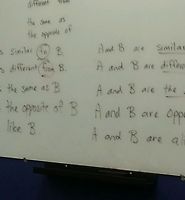 different from
the same as
the opposite of
s similar to B.
s different from B.
s the same as B
the opposite of B
like B
A and B are similar
A and B are differe
A and B are the
A and B are oppo
A and B are ali